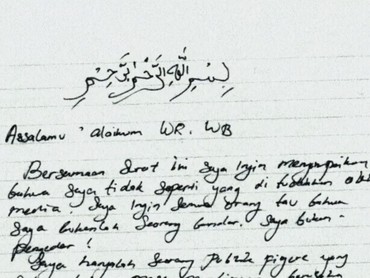 بسم الله الرحمن الرحيم
Assalamu 'alaikum WR. WB
Bersamaan Surat ini saya ingin menyampaikan
bahwa saya tidak seperti yang di tuduhkan oleh
media. Saya ingin semua orang tau bahwa
saya bukanlah seorang bandar. Saya bukan
pengedar!
Saya hanyalah seorang publik figure yang